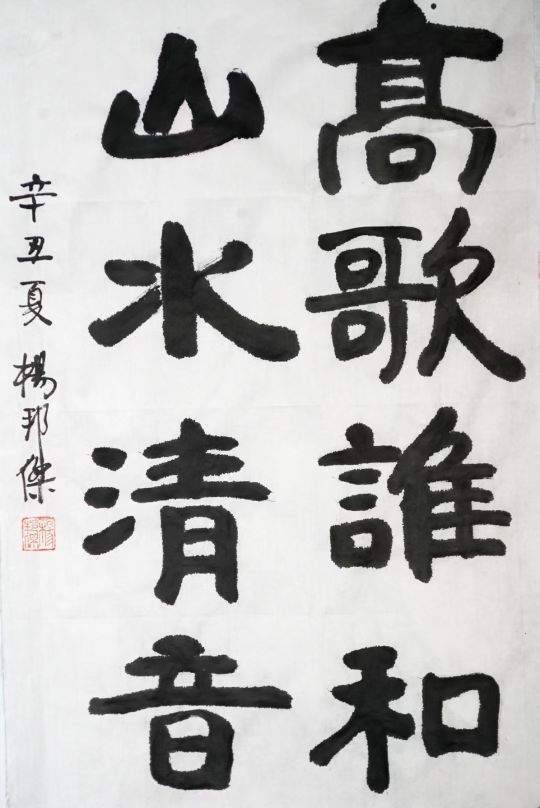 高歌誰和
山水清音
辛丑夏 楊邦傑